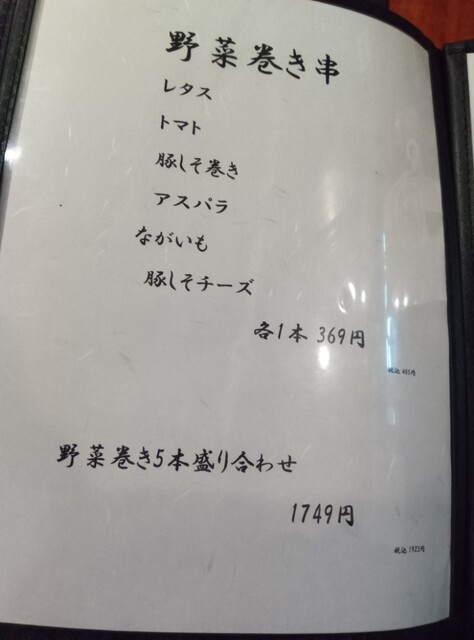 野菜巻き串
レタス
トマト
豚しそ巻き
アスパラ
ながいも
豚しそチーズ
各1本 369円
税込 405円
野菜巻き5本盛り合わせ
1749円
税込 1923円